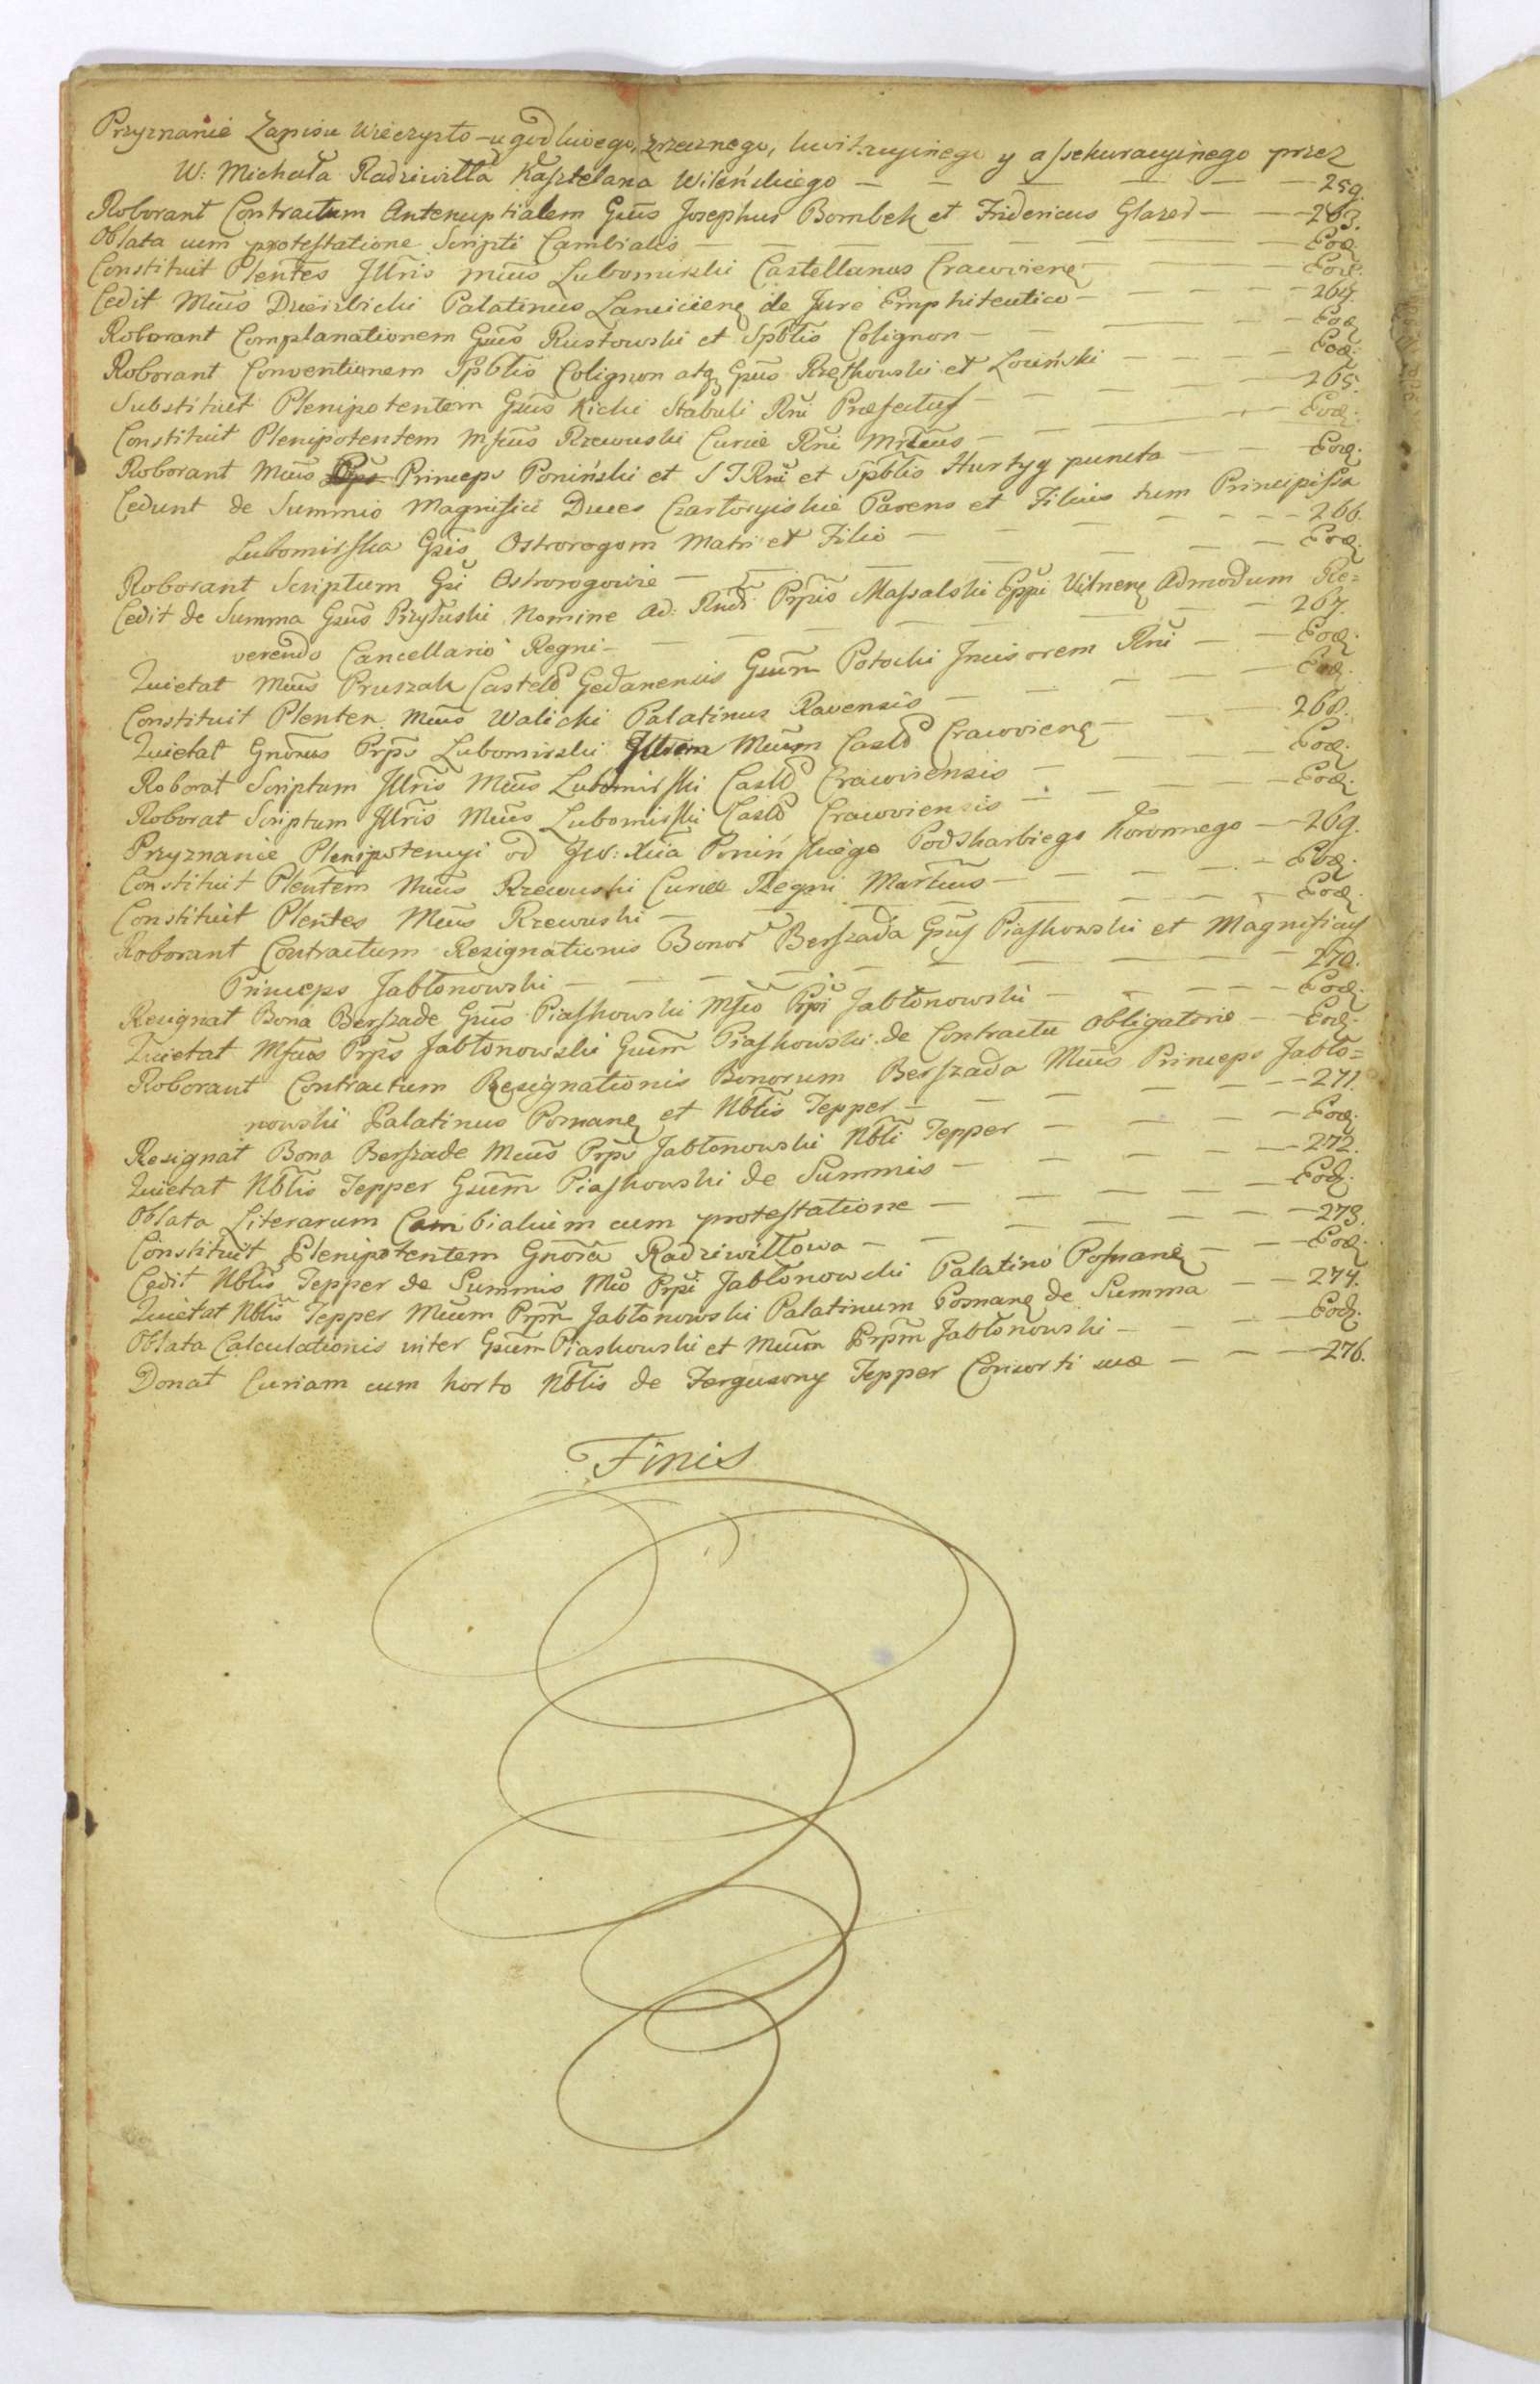 Przyznanie Zapisu Wieczysto-ugodliwego, zrzecznego, kwitacyinego y assekuracyinego przez
W: Michała Radziwiłła Kasztelana Wileńskiego — 259.
Roborant Contractum Antenuptialem Gsus Josephus Bombek et Fridericus Glazer — 263.
Oblata cum protestatione Scripti Cambialis — Eod.
Constituit Plentes Jllris Mcus Lubomirski Castellanus Cracovien — Eod.
Cedit Mcus Dzierzbicki Palatinus Lancicien de Jure Emphiteutico — 264.
Roborant Complanationem Gsus Rustowski et Spblis Colignon — Eod.
Roborant Conventionem Spblis Colignon atq Gsus Rzętkowski et Łoziński — Eod.
Substituit Plenipotentem Gsus Kicki Stabuli Rni Præfectus — 265.
Constituit Plenipotentem Mfcus Rzewuski Curiæ Rni Mrlcus — Eod.
Roborant Mcus Princeps Poniński et S J Rni et Spblis Hurtyg puncta — Eod.
Cedunt de Summis Magnifici Duces Czartoryiskie Parens et Filius tum Principissa
Lubomirska Gsis Ostrorogom Matri et Filio — 266.
Roborant Scriptum Gsi Ostrorogowie — Eod.
Cedit de Summa Gsus Przyłuski Nomine Ad: Rndi Prpis Massalski Eppi Vilnen Admodum Re=
verendo Cancellario Regni — 267.
Quietat Mcus Pruszak Castell Gedanensis Gsum Potocki Incisorem Rni — Eod.
Constituit Plenten Mcus Walicki Palatinus Ravensis — Eod.
Quietat Gnosus Prps Lubomirski Jllrem Mcum Castll Cracovien — 268.
Roborat Scriptum Jllris Mcus Lubomirski Castll Cracoviensis — Eod.
Roborat Scriptum Jllris Mcus Lubomirski Castll Cracoviensis — Eod.
Przyznanie Plenipotencyi od JW: Xcia Ponińskiego Podskarbiego Koronnego — 269.
Constituit Plentem Mcus Rzewuski Curiæ Regni Marlcus — Eod.
Constituit Plentes Mcus Rzewuski — Eod.
Roborant Contractum Resignationis Bonor Berszada Gsus Piaskowski et Magnificus
Princeps Jabłonowski — 270.
Resignat Bona Berszade Gsus Piaskowski Mfco Prpi Jabłonowski — Eod.
Quietat Mfcus Prps Jabłonowski Gsum Piaskowski de Contractu obligatorio — Eod.
Roborant Contractum Resignationis Bonorum Berszada Mcus Princeps Jabło=
nowski Palatinus Posnan et Nblis Tepper — 271.
Resignat Bona Berszade Mcus Prps Jabłonowski Nbli Tepper — Eod.
Quietat Nblis Tepper Gsum Piaskowski de Summis — 272.
Oblata Literarum Cambialium cum protestatione — Eod.
Constituit Plenipotentem Gnosa Radziwiłłowa — 273.
Cedit Nblis Tepper de Summis Mco Prpi Jabłonowski Palatino Posnanien — Eod.
Quietat Nblis Tepper Mcum Prpm Jabłonowski Palatinum Posnan de Summa — 274.
Oblata Calculationis inter Gsum Piaskowski et Mcum Prpm Jabłonowski — Eod.
Donat Curiam cum horto Nblis de Fergusony Tepper Consorti suæ — 276.
Finis